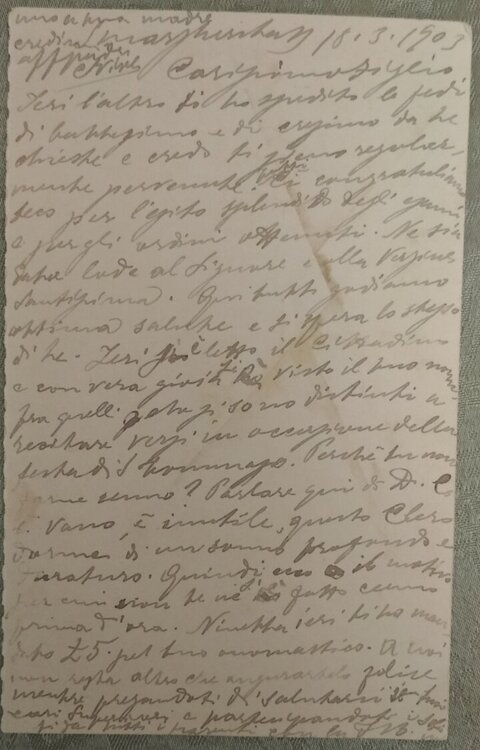 tuo e tua madre
Margherita 18.3.1903
affma
Carissimo figlio
Ieri l'altro ti ho spedito le fedi
di battesimo e di cresima da te
chieste e credo ti siano regolar-
mente pervenute. Ci congratuliamo
teco per l'esito splendido degli esami
e per gli ordini ottenuti. Ne sia
lode al Signore e alla Vergine
Santissima. Qui tutti godiamo
ottima salute e si spera lo stesso
di te. Ieri letto il Cittadino
e con vera gioia visto il tuo nome
fra quelli che si sono distinti a
recitare versi in occasione della
festa di S. Tommaso. Perché tu non
farne cenno? Parlare qui di D.
è inutile, questo Clero
dorme di un sonno profondo e
duraturo. Quindi il motivo
per cui non te ne fatto cenno
prima d'ora. Ninetta ieri ti ha man-
dato £5. pel tuo onomastico. A noi
non resta altro che augurartelo felice
mentre pregandoti di salutarci i tuoi
cari Superiori e
tutti i parenti